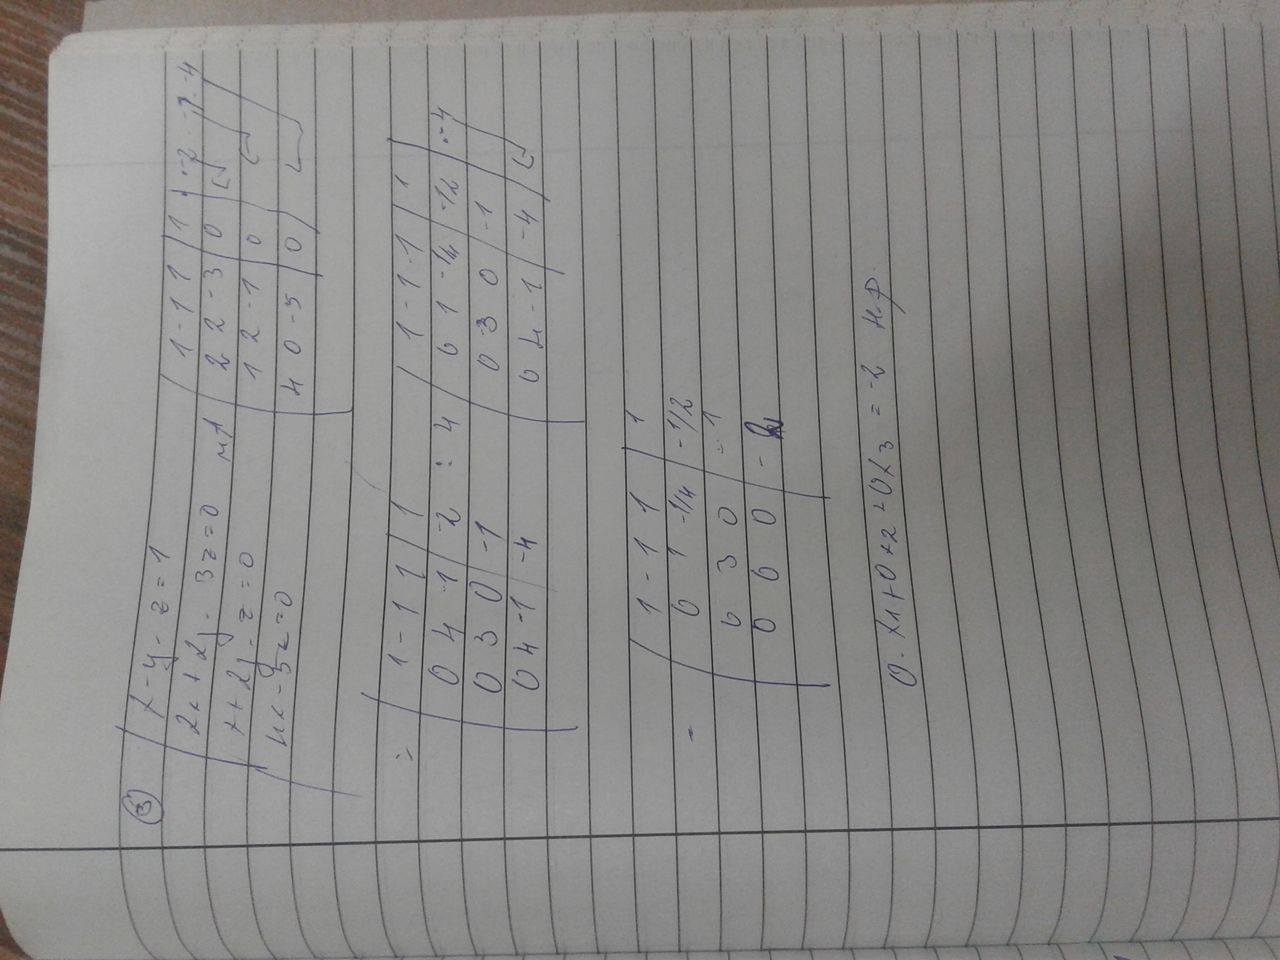 ③ x - y - z = 1
2x + 2y - 3z = 0
x + 2y - z = 0
4x - 5z = 0
1 -1 1 | 1 | ·-2 ·-1 ·-4
2 2 -3 | 0
1 2 -1 | 0
4 0 -5 | 0
1 -1 1 | 1
0 4 -1 | -2 : 4
0 3 0 | -1
0 4 -1 | -4
1 -1 -1 | 1
0 1 -1/4 | -1/2 | ·-4
0 3 0 | -1
0 4 -1 | -4
1 -1 1 | 1
0 1 -1/4 | -1/2
0 3 0 | -1
0 0 0 | -2
0·x1+0x2+0x3 = -2 н.р.